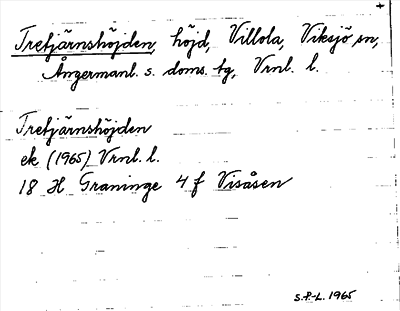 +
Trefjärnshöjden, höjd, Villola, Viksjö sn,
Ångermanl. s. doms. tg, Vrnl. l.
Trefjärnshöjden
ek (1965) Vrnl. l.
18 H Graninge 4 f Visåsen
S.P.-L. 1965